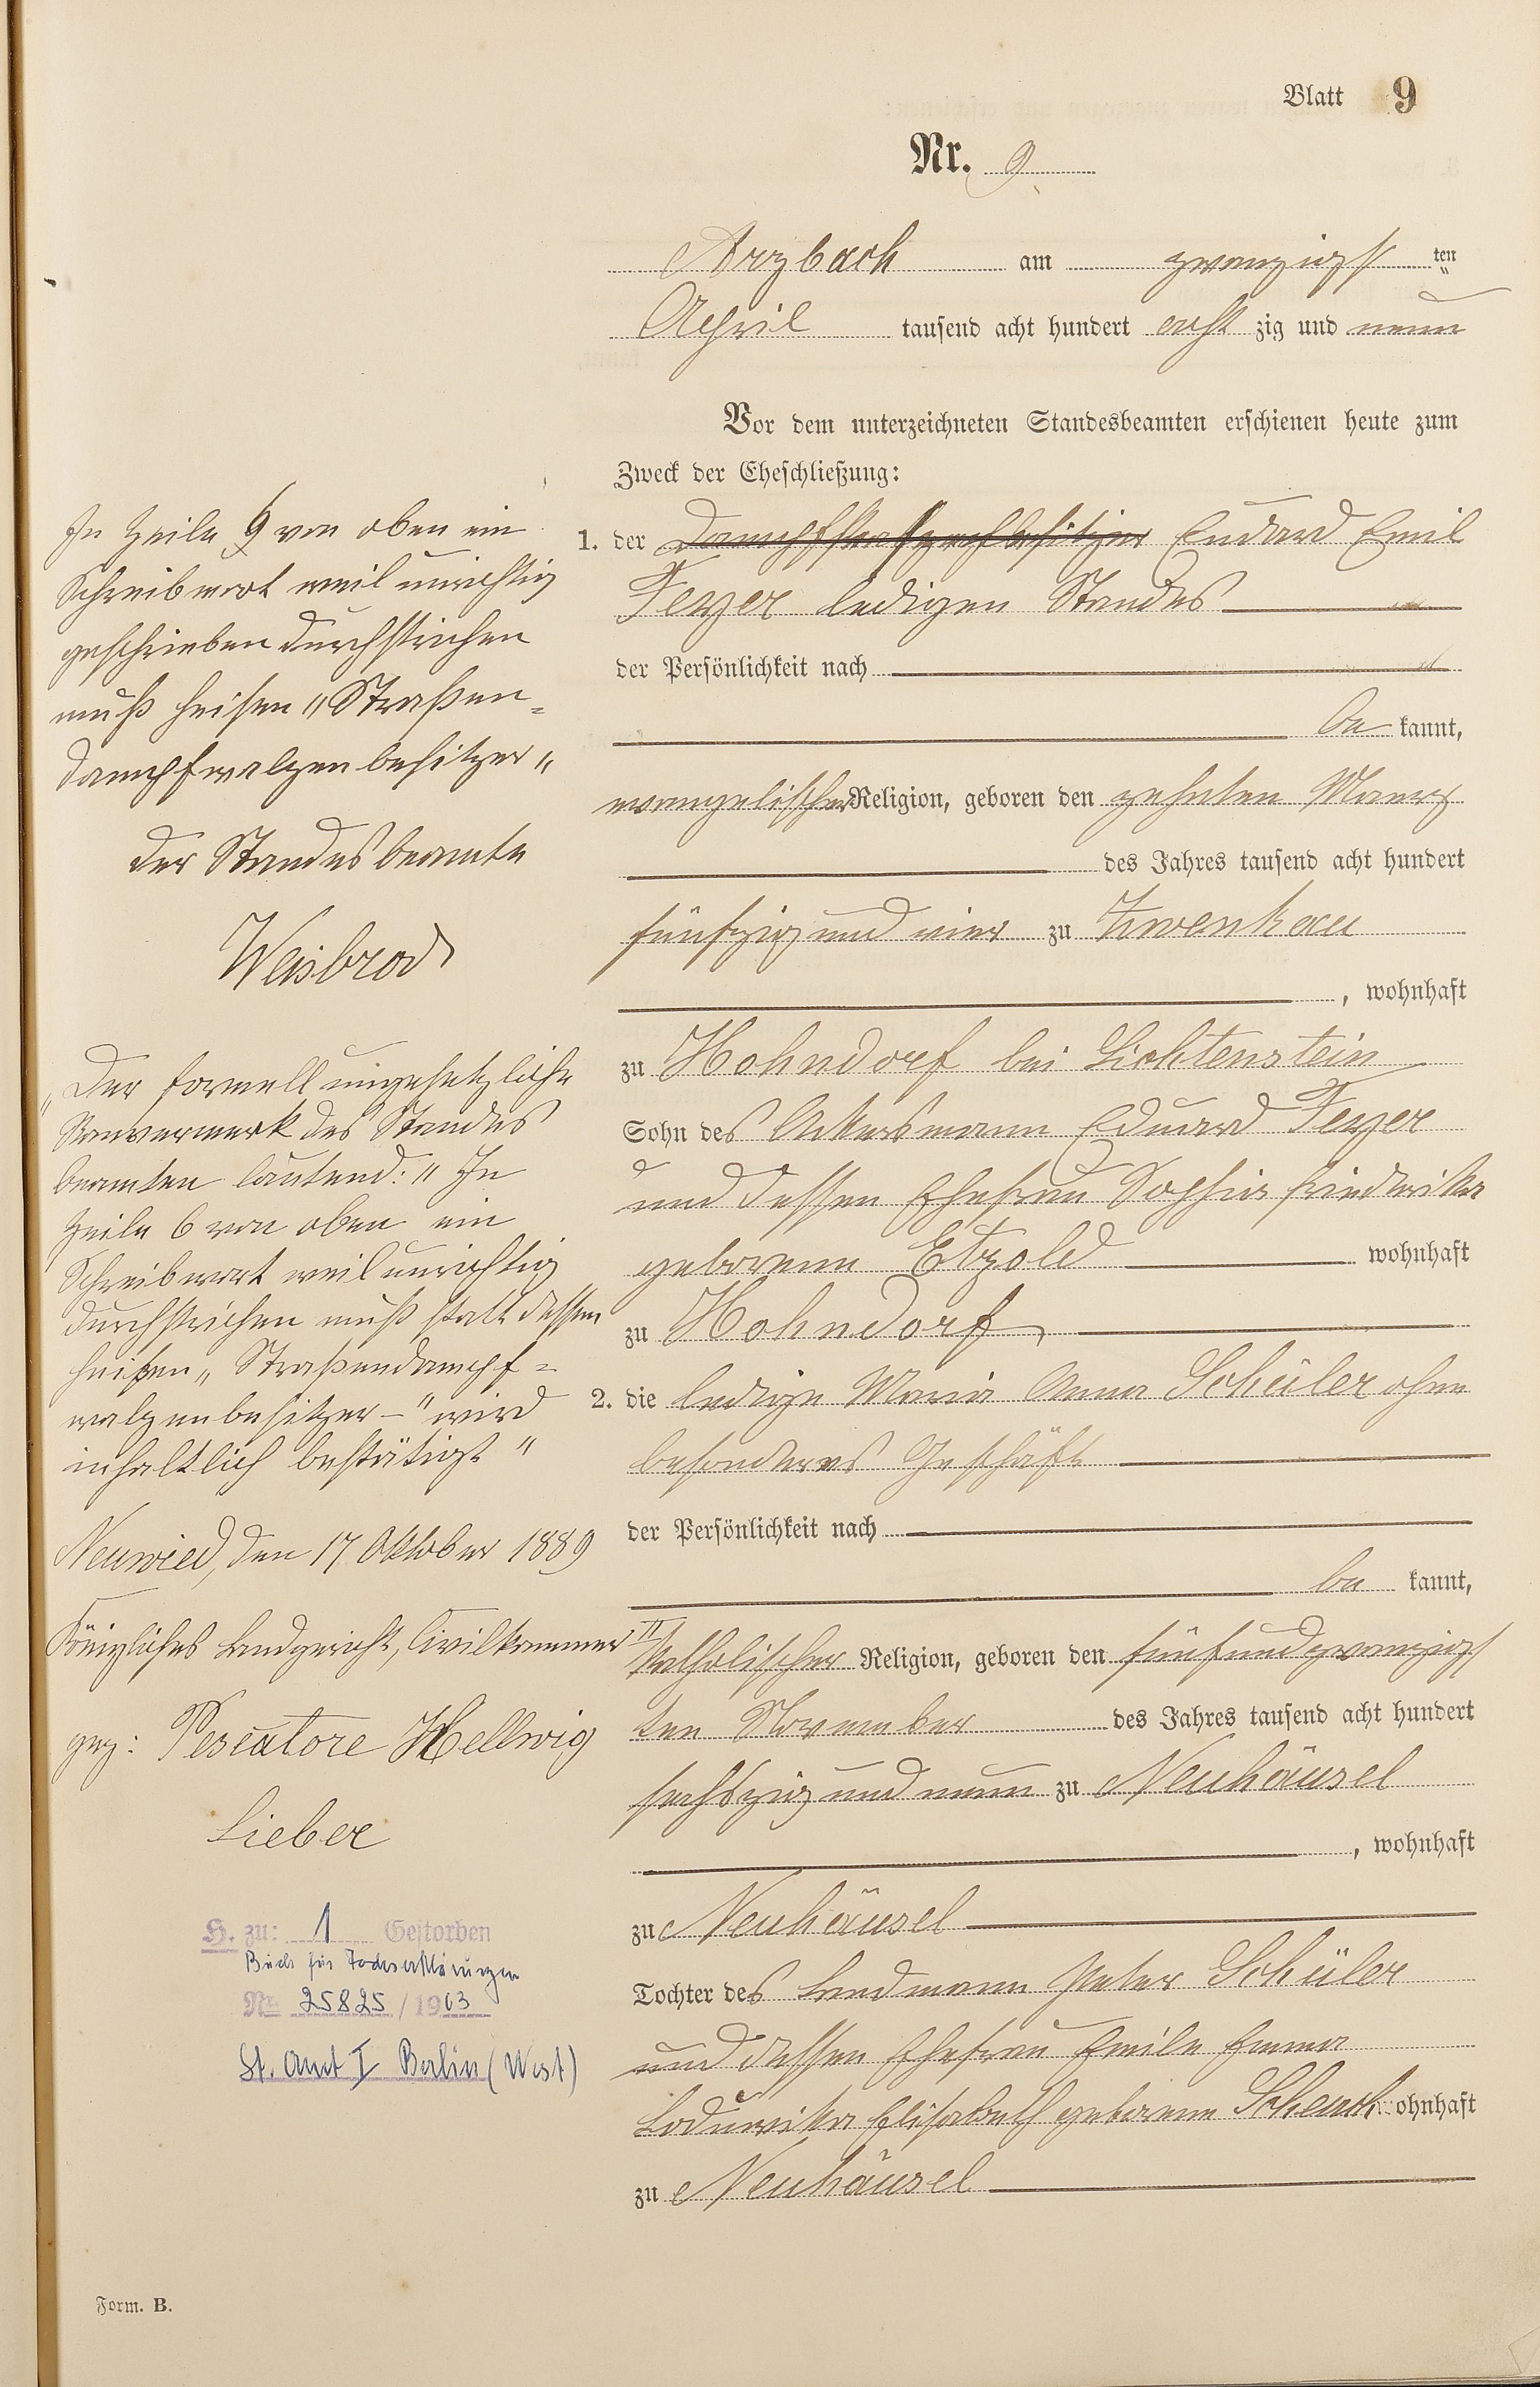 Blatt 9
Nr. 9
Arzbach am zwanzigst ten
April tausend acht hundert acht zig und neun
Vor dem unterzeichneten Standesbeamten erschienen heute zum
Zweck der Eheschließung:
1. der Eduard Emil
Feyer ledigen Standes
der Persönlichkeit nach
be kannt,
evangelischer Religion, geboren den zehnten Maerz
des Jahres tausend acht hundert
fünfzig und vier zu Zwenkau
, wohnhaft
zu Hohndorf bei Lichtenstein
Sohn des Ackersmann Eduard Feyer
und dessen Ehefrau Sophia Friedrika
geborene Etzold wohnhaft
zu Hohndorf
2. die ledige Maria Anna Schüler ohne
besonderes Geschäft
der Persönlichkeit nach
be kannt,
katholischer Religion, geboren den fünfundzwanzigs
ten November des Jahres tausend acht hundert
sechszig und neun zu Neuhäusel
, wohnhaft
zu Neuhäusel
Tochter des Landmann Peter Schüler
und dessen Ehefrau Emile Emma
Ludwika Elisabeth geborene Schenk wohnhaft
zu Neuhäusel
In Zeile 9 von oben ein
Schreibwort weil unrichtig
geschrieben durchstrichen
muß heisen "Straßen-
dampfwalzenbesitzer"
Der Standesbeamte
Weisbrod
"Der formell ungesetzliche
Randvermerk des Standes
beamten lautend: "In
Zeile 6 von oben ein
Schreibwort weil unrichtig
durchstrichen muß statt dessen
heißen "Straßendampf-
walzenbesitzer-" wird
inhaltlich bestätigt"
Neuwied, den 17 Oktober 1889
Königliches Landgericht, Civilkammer II
gez: Pescatore Hellwig
Lieber
H. zu: 1 Gestorben
Buch für Todeserklärungen
Nr. 25825/1963
St. Amt I Berlin (West)
Form. B.